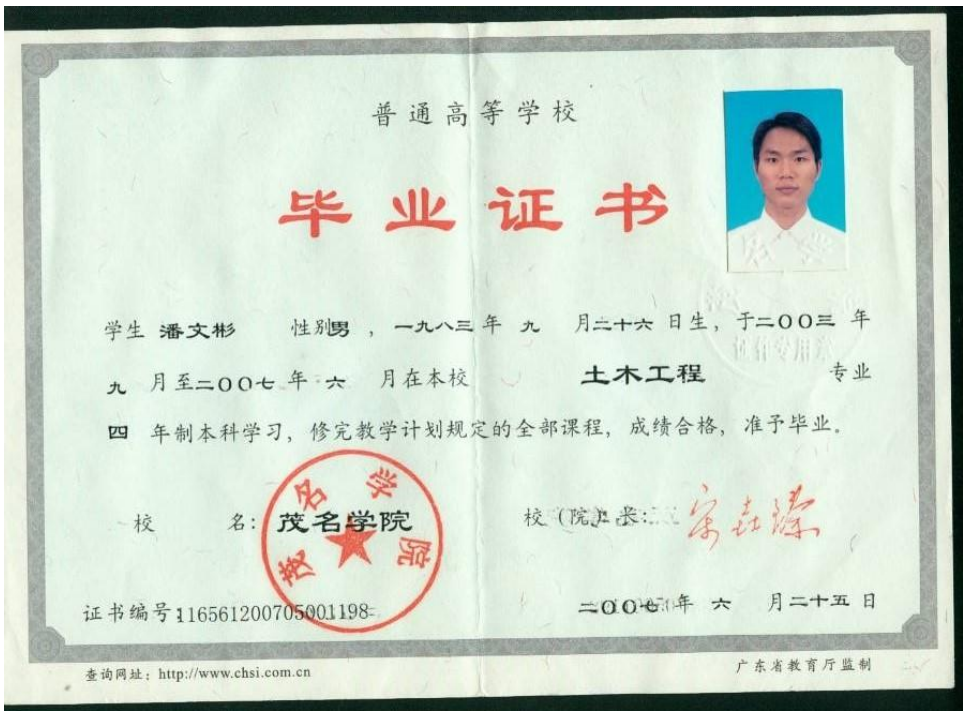 普通高等学校
毕业证书
学生 潘文彬 性别男，一九八三年 九 月二十六日生，于二〇〇三 年
九 月至二〇〇七 年 六 月在本校 土木工程 专业
四 年制本科学习，修完教学计划规定的全部课程，成绩合格，准予毕业。
茂名学院
校 名：茂名学院 校（院）长：
证书编号：116561200705001198 二〇〇七年 六 月二十五日
查询网址：http://www.chsi.com.cn 广东省教育厅监制